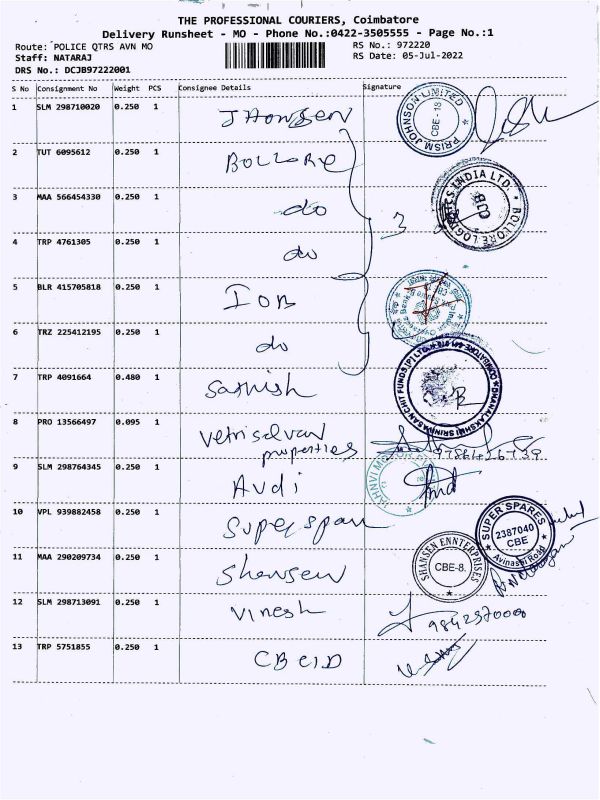 THE PROFESSIONAL COURIERS, Coimbatore
Delivery Runsheet - MO - Phone No.:0422-3505555 - Page No.:1
Route: POLICE QTRS AVN MO
RS No.: 972220
Staff: NATARAJ
RS Date: 05-Jul-2022
DRS No.: DCJB97222001
S No Consignment No Weight PCS Consignee Details Signature
1 SLM 298710020 0.250 1 JHONSEN
PRISM JOHNSON LIMITED CBE - 18.
2 TUT 6095612 0.250 1 BOLLORE
3 MAA 566454330 0.250 1 do 3
BOLLORE LOGISTICS INDIA LTD. CJB
4 TRP 4761305 0.250 1 do
5 BLR 415705818 0.250 1 IOB
6 TRZ 225412195 0.250 1 do
7 TRP 4091664 0.480 1 Sathish
DHANALAKSHMI SRINIVASAN CHIT FUNDS (P) LTD. COIMBATORE
8 PRO 13566497 0.095 1 Vetriselvan
properties
9 SLM 298764345 0.250 1 AVDI
10 VPL 939882458 0.250 1 Superspan
SUPER SPARES 2387040 CBE Avinashi Road
11 MAA 290209734 0.250 1 Shensen
SHANSEN ENNTERPRISES CBE-8.
12 SLM 298713091 0.250 1 Vinesh
9842970000
13 TRP 5751855 0.250 1 CBCID